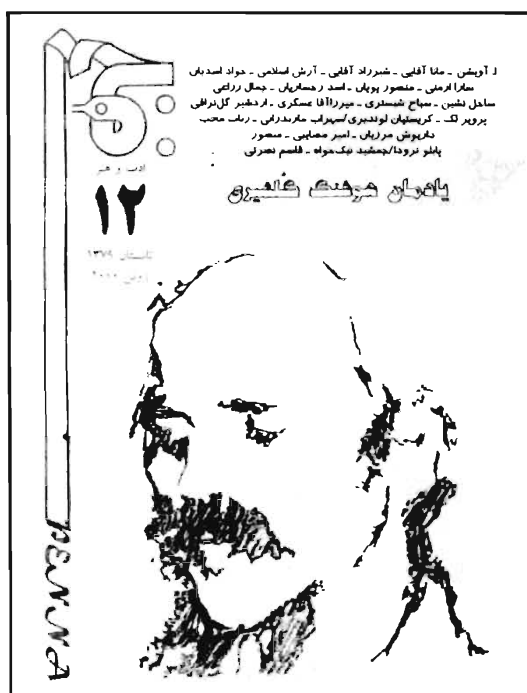 ل آویشن - مانا آقایی - شیرزاد آقایی - آرش اسلامی - جواد اسدیان
سارا ارمنی - منصور پویان - اسد رخساریان - جمال زراعی
ساحل نشین - صباح شبستری - میرزاآقا عسگری - اردشیر گل‌نراقی
پرویز لک - کریستیان لوندبری/سهراب مازندرانی - رباب محب
داریوش مرزبان - امیر مصابی - منصور
پابلو نرودا/جمشید نیک‌خواه - قاسم نصرتی
ادب و هنر
۱۲
یادمان هوشنگ گلشیری
تابستان ۱۳۷۹
PENNA